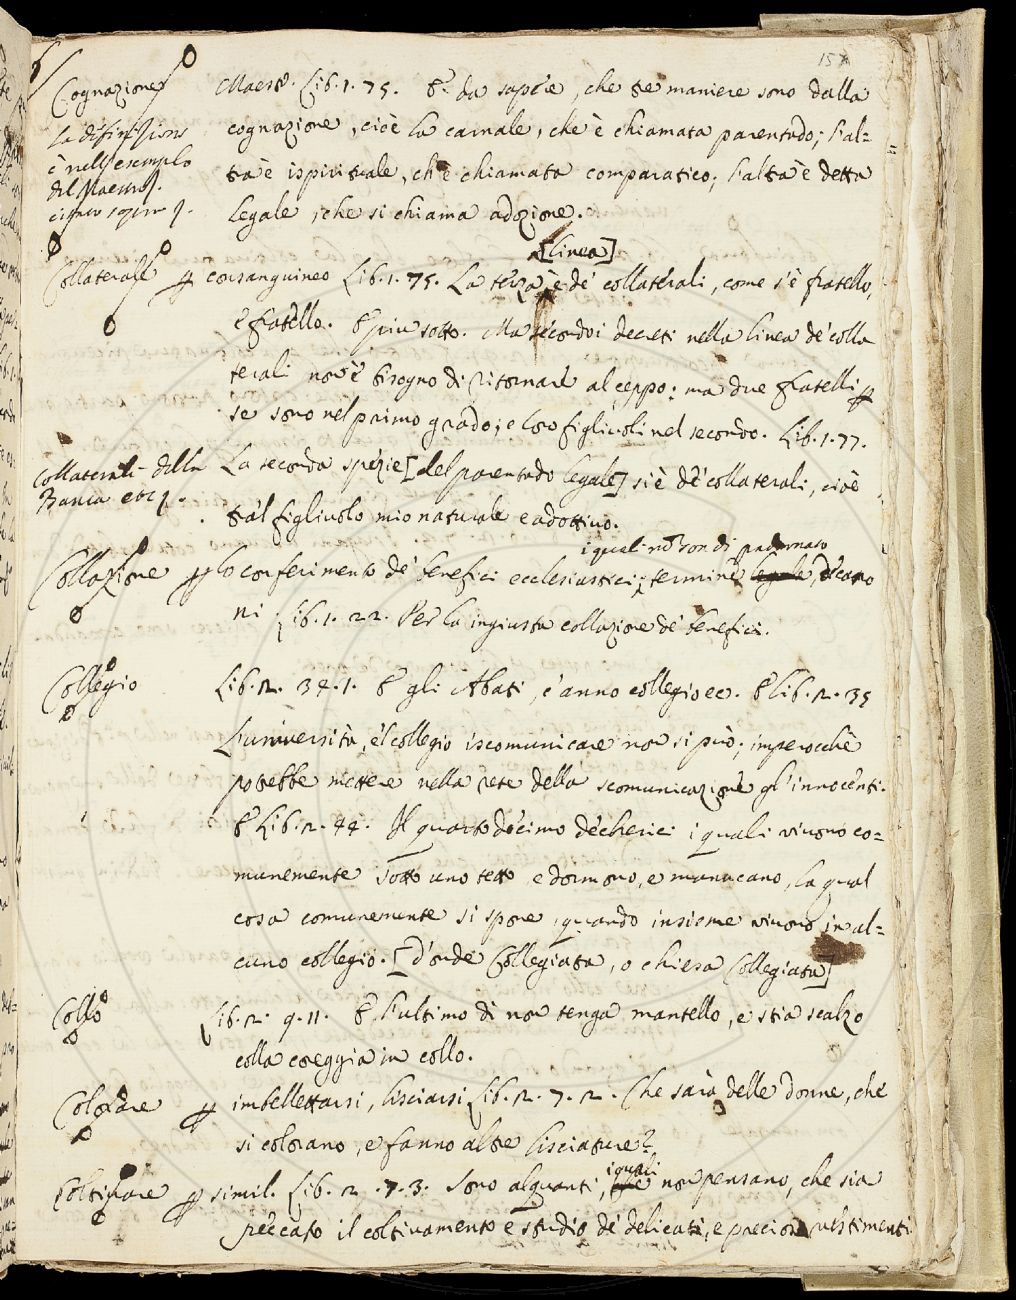 157
Cognazione Maestr. Lib. 1. 75. E da sapere, che tre maniere sono della
cognazione, cioè la carnale, che è chiamata parentado; l'al=
tra è ispirituale, ch'è chiamata comparatico; l'altra è detta
legale, che si chiama adozione.
La difinizione
è nell'esemplo
del Maestruz.
[linea]
Collaterale p consanguineo Lib. 1. 75. La terza è de' collaterali, come s'è fratello,
e fratello. E più sotto. Ma secondo i decreti nella linea de' colla
terali non è bisogno di ritornare al ceppo: ma due fratelli p
se sono nel primo grado; e loro figliuoli nel secondo. Lib. 1. 77.
Collaterali della
Banca
La seconda spezie [del parentado legale] si è de' collaterali, cioè
tra 'l figliuolo mio naturale e adottivo.
i quali non son di padronato
Collazione p lo conferimento de' benefici ecclesiastici; termine legale, de' cano
ni Lib. 1. 22. Per la ingiusta collazione de' benefici.
Collegio Lib. 2. 34. 1. E gli Abati, e anno collegio ec. E Lib. 2. 35
L'università, e 'l collegio iscomunicare non si può; imperocchè
potrebbe mettere nella rete della scomunicazione gl' innocenti.
E Lib. 2. 44. Il quartodecimo de' cherici i quali vivono co=
munemente sotto uno tetto, e dormono, e manucano, la qual
cosa comunemente si spone, quando insieme vivono in al=
cuno collegio. [d'onde Collegiata, o chiesa Collegiata]
Collo Lib. 2. 9. 11. E l'ultimo dì non tenga mantello, e stia scalzo
colla coreggia in collo.
Colorare p imbellettarsi, lisciarsi Lib. 2. 7. 2. Che sarà delle donne, che
si colorano, e fanno altre lisciature?
i quali
Coltivare p simil. Lib. 2. 7. 3. Sono alquanti, che non pensano, che sia
peccato il coltivamento e studio de' delicati, e preciosi vestimenti